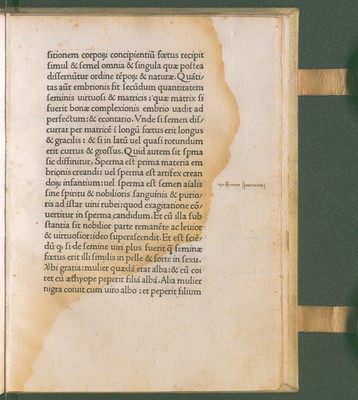 sitionem corporꝝ concipientiū fœtus recipit
simul & semel omnia & singula quæ postea
dissernūtur ordine tēporꝝ & naturæ. Quāti-
tas aūt embrionis fit secūdum quantitatem
seminis uirtuosi & matricis: quæ matrix si
fuerit bonæ complexionis embrio uadit ad
perfectum: & econtario. Vnde si semen dis-
currat per matricē ī longū fœtus erit longus
& gracilis: & si in latū uel quasi rotundum
erit curtus & grossus. Quid autem sit spma
sic diffinitur. Sperma est prima materia em
brionis creandi: uel sperma est artifex crean
doꝝ infantium: uel sperma est semen aīalis
sine spiritu & nobilioris sanguinis & purio-
ris ad istar uini rubei: quod exagitatione cō-
uertitur in sperma candidum. Et cū illa sub
stantia sit nobilior parte remanēte ac leuior
& uirtuosior: ideo superascendit. Et est sciē-
dū ꝙ si de semine uiri plus fuerit ꝙ̄ feminæ
fœtus erit illi similis in pelle & forte in sexu.
Vbi gratia: mulier quædā erat alba: & cū coi
ret cū æthyope peperit filiā albā. Alia mulier
nigra coiuit cum uiro albo: et peperit filium